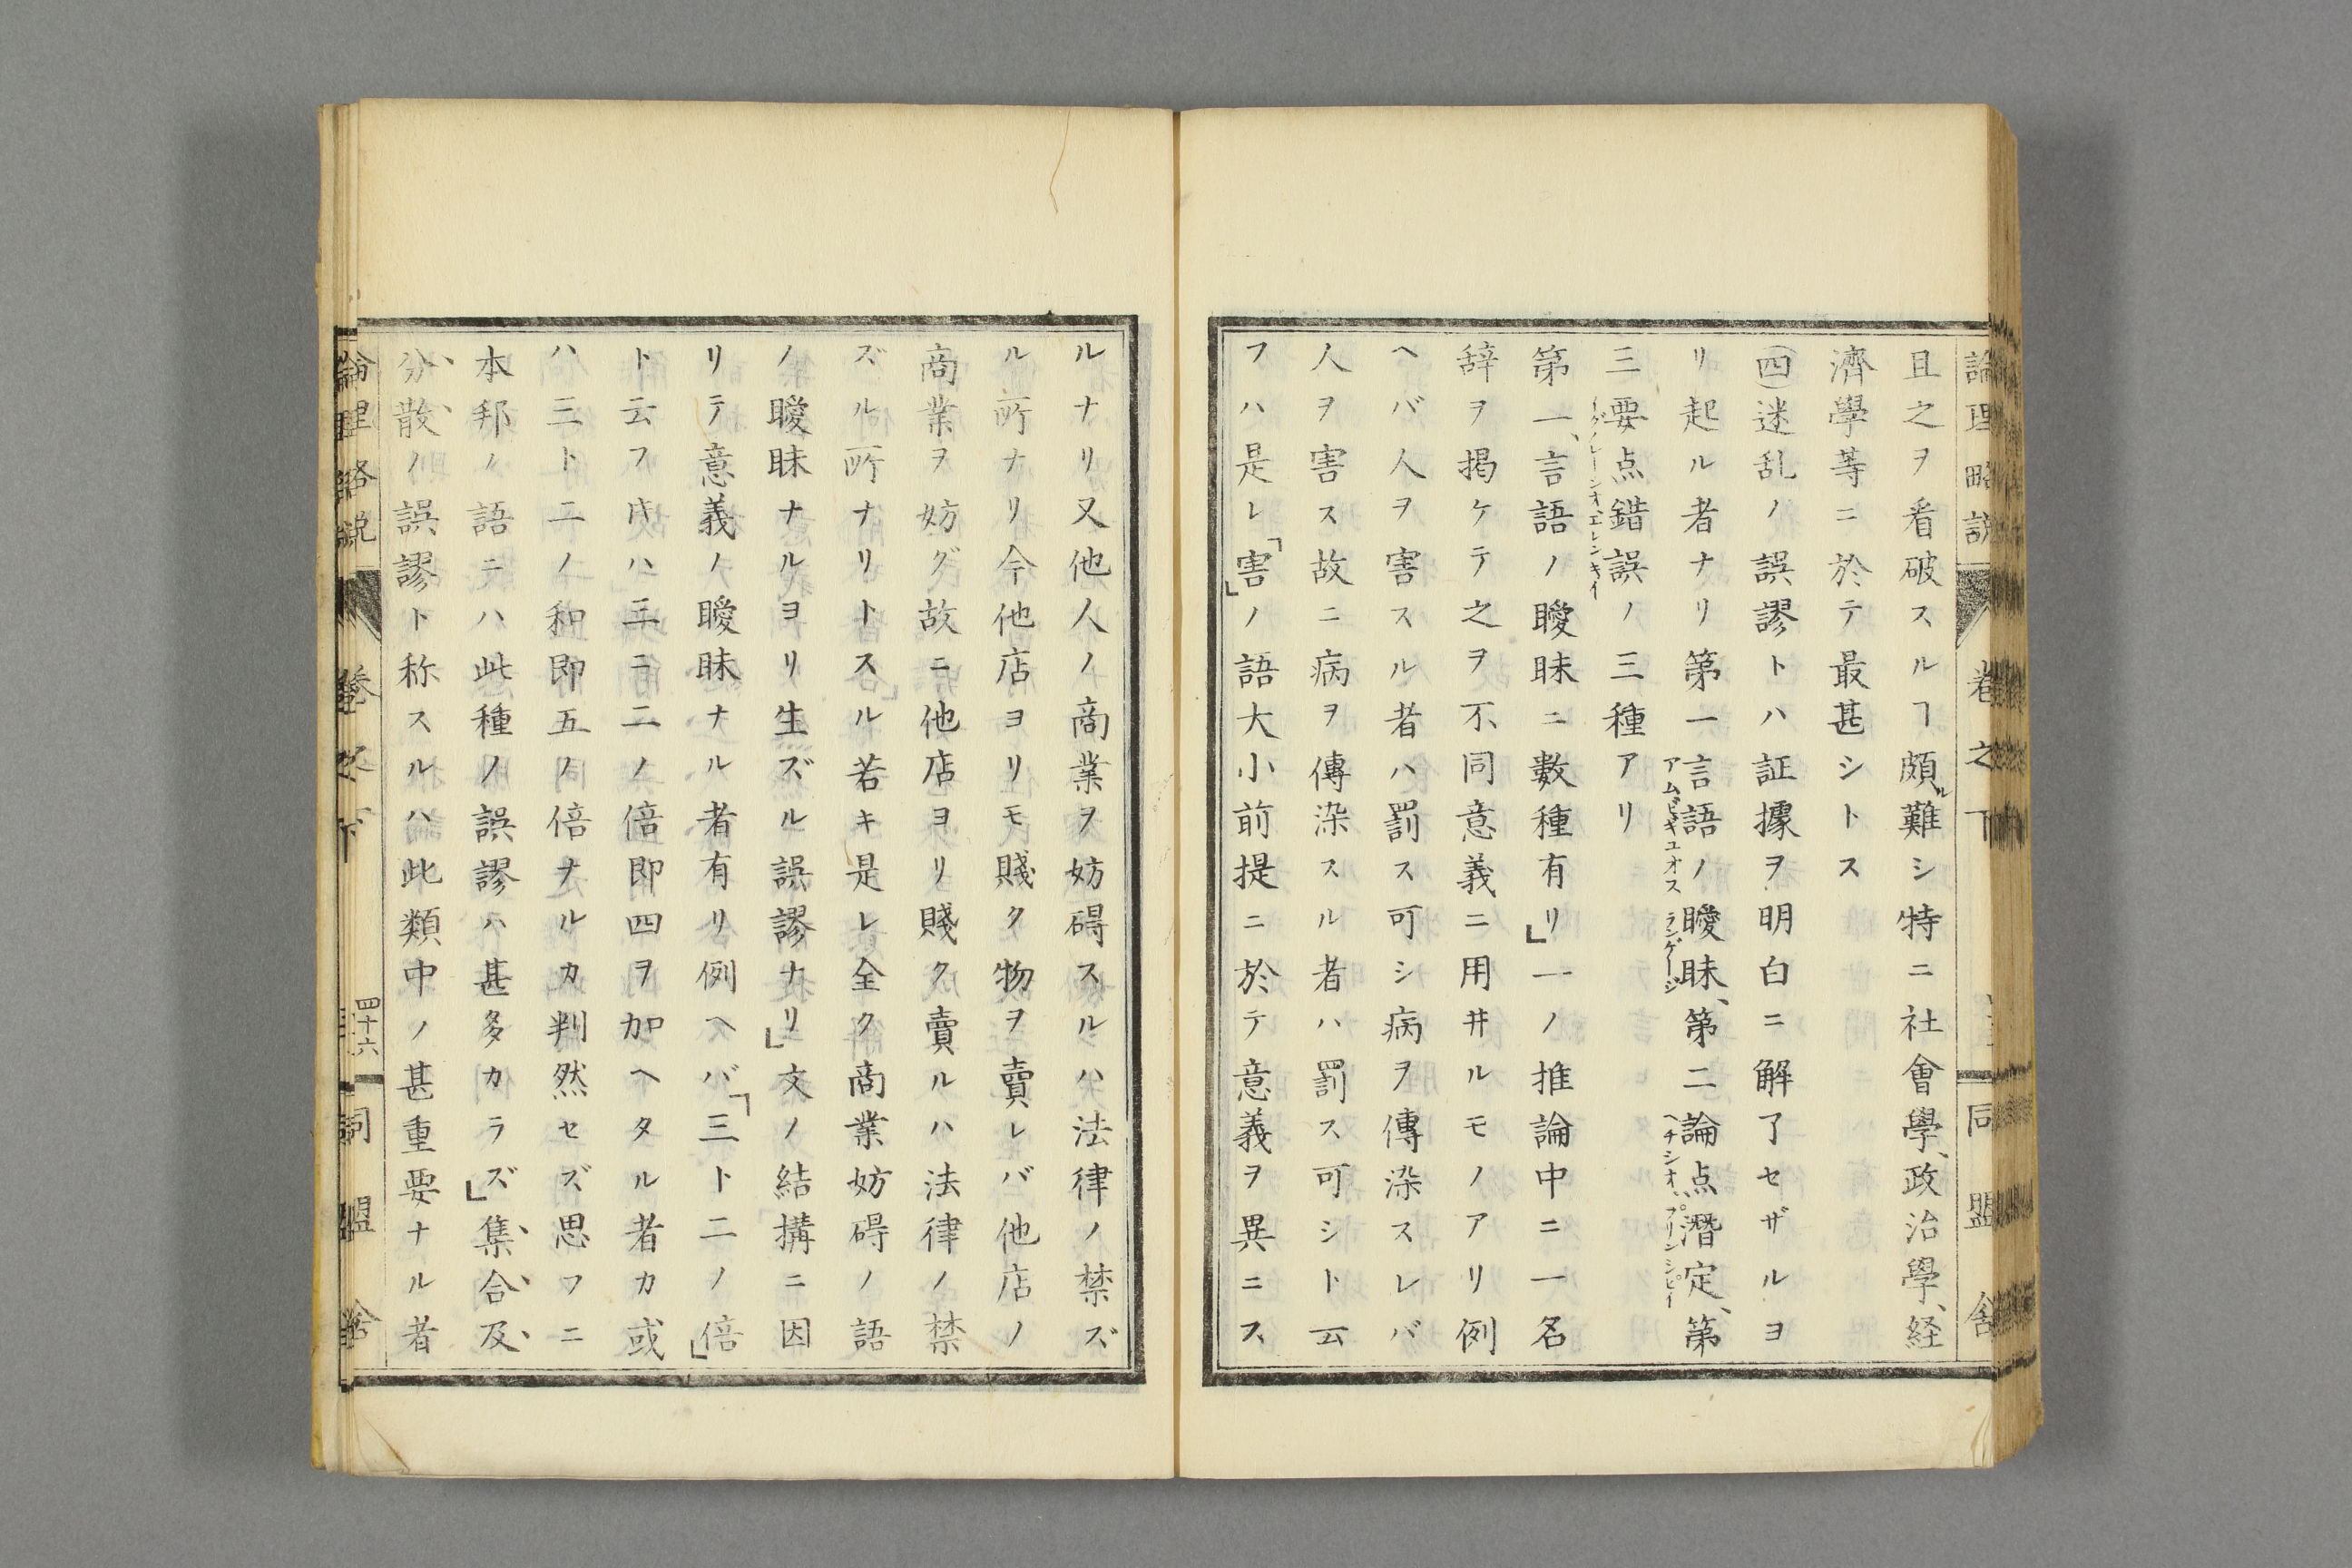 論理略説 卷之下 同盟舍
且之ヲ看破スルヿ頗ル難シ特ニ社會學、政治學、経
濟學等ニ於テ最甚シトス
(四)迷乱ノ誤謬トハ証據ヲ明白ニ解了セザルヨ
リ起ル者ナリ第一言語ノ曖昧、第二論点潛定、第
アムビギユオス ランゲージ ペチシオ、プリンシピイ
三要点錯誤ノ三種アリ
イグノレーシオ、エレンキイ
第一、言語ノ曖昧ニ數種有リ」一ノ推論中ニ一名
辞ヲ掲ケテ之ヲ不同意義ニ用井ルモノアリ例
ヘバ人ヲ害スル者ハ罰ス可シ病ヲ傳染スレバ
人ヲ害ス故ニ病ヲ傳染スル者ハ罰ス可シト云
フハ是レ「害」ノ語大小前提ニ於テ意義ヲ異ニス
ルナリ又他人ノ商業ヲ妨碍スルハ法律ノ禁ズ
ル所ナリ今他店ヨリモ賤ク物ヲ賣レバ他店ノ
商業ヲ妨グ故ニ他店ヨリ賤ク賣ルハ法律ノ禁
ズル所ナリトスル若キ是レ全ク商業妨碍ノ語
ノ曖昧ナルヨリ生ズル誤謬ナリ」文ノ結搆ニ因
リテ意義ノ曖昧ナル者有リ例ヘバ「三ト二ノ倍」
ト云フ片ハ三ニ二ノ倍即四ヲ加ヘタル者カ或
ハ三ト二ノ和即五ノ倍ナルカ判然セズ思フニ
本邦ノ語ニハ此種ノ誤謬ハ甚多カラズ」集、合、及、
分、散、ノ誤謬ト称スルハ此類中ノ甚重要ナル者
論理略説 卷之下 四十六 同盟舍